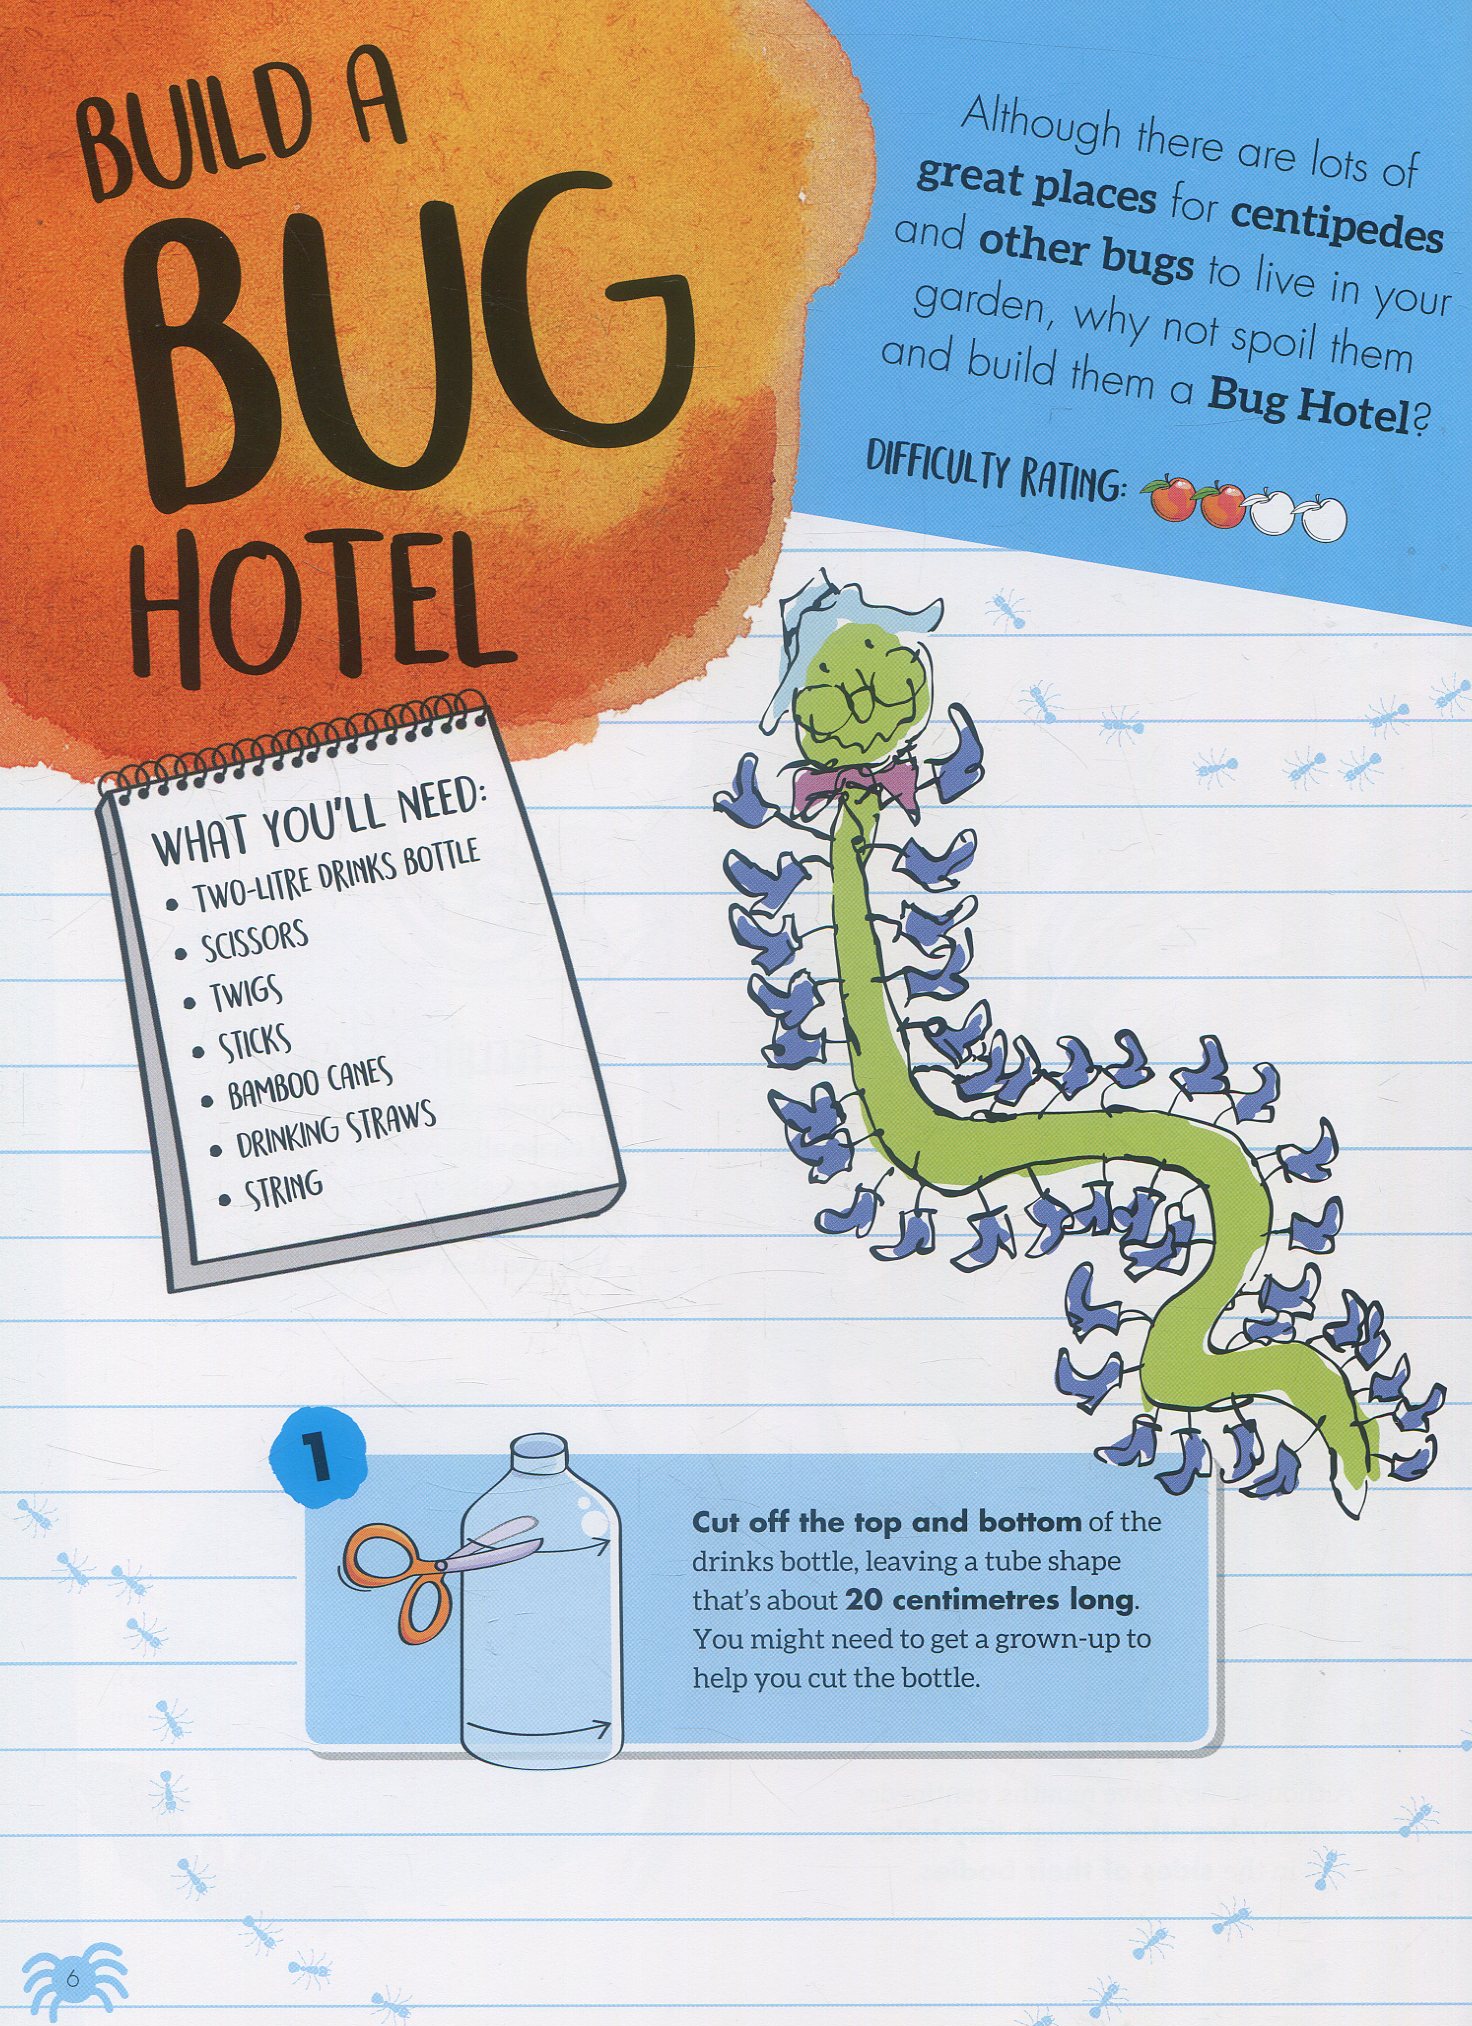 BUILD A
BUG
HOTEL
Although there are lots of
great places for centipedes
and other bugs to live in your
garden, why not spoil them
and build them a Bug Hotel?
DIFFICULTY RATING:
WHAT YOU'LL NEED:
• TWO-LITRE DRINKS BOTTLE
• SCISSORS
• TWIGS
• STICKS
• BAMBOO CANES
• DRINKING STRAWS
• STRING
1
Cut off the top and bottom of the
drinks bottle, leaving a tube shape
that's about 20 centimetres long.
You might need to get a grown-up to
help you cut the bottle.
6